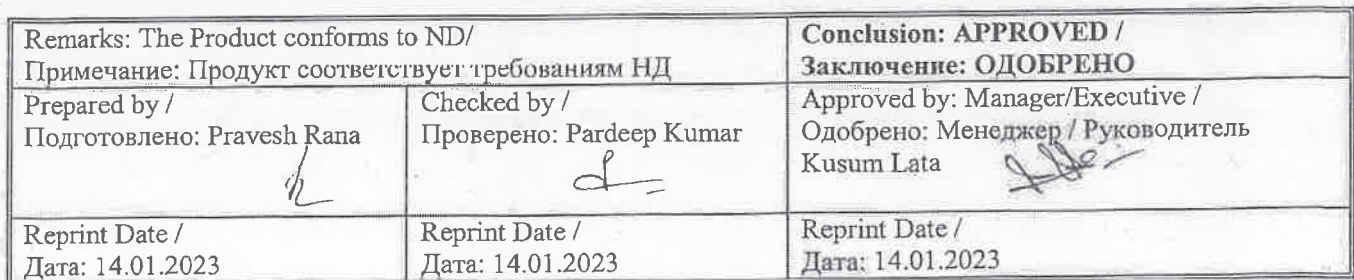 Remarks: The Product conforms to ND/
Примечание: Продукт соответствует требованиям НД
Conclusion: APPROVED /
Заключение: ОДОБРЕНО
Prepared by /
Подготовлено: Pravesh Rana
Checked by /
Проверено: Pardeep Kumar
Approved by: Manager/Executive /
Одобрено: Менеджер / Руководитель
Kusum Lata
Reprint Date /
Дата: 14.01.2023
Reprint Date /
Дата: 14.01.2023
Reprint Date /
Дата: 14.01.2023